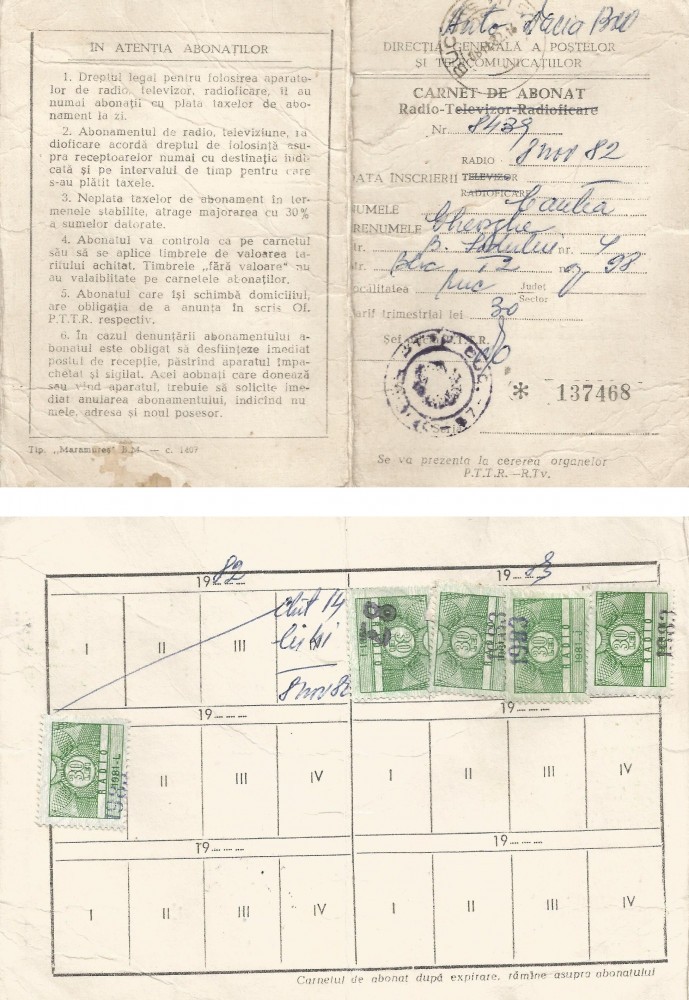 IN ATENȚIA ABONAȚILOR
1. Dreptul legal pentru folosirea aparate-
lor de radio, televizor, radioficare, îl au
numai abonații cu plata taxelor de abo-
nament la zi.
2. Abonamentul de radio, televiziune, ra
dioficare acordă dreptul de folosință asu-
pra receptoarelor numai cu destinație indi-
cată și pe intervalul de timp pentru care
s-au plătit taxele.
3. Neplata taxelor de abonament în ter-
menele stabilite, atrage majorarea cu 30%
a sumelor datorate.
4. Abonatul va controla ca pe carnetul
său să se aplice timbrele de valoarea ta-
rifului achitat. Timbrele „fără valoare" nu
au valaibiltate pe carnetele abonaților.
5. Abonatul care își schimbă domiciliul,
are obligația de a anunța în scris Of.
P.T.T.R. respectiv.
6. In cazul denunțării abonamentului a-
bonatul este obligat să desființeze imediat
postul de recepție, păstrînd aparatul împa-
chetat și sigilat. Acei aobnați care donează
sau vînd aparatul, trebuie să solicite ime-
diat anularea abonamentului, indicînd nu
mele, adresa și noul posesor.
Tip. „Maramureș" B.M. — c. 1407
Auto Dacia
DIRECȚIA GENERALĂ A POȘTELOR
ȘI TELECOMUNICAȚIILOR
CARNET DE ABONAT
Radio-Televizor-Radioficare
Nr. 8439
RADIO 8 nov 82
DATA ÎNSCRIERII TELEVIZOR
RADIOFICARE
NUMELE
PRENUMELE Gheorghe
Str. nr. 4
Bloc
Localitatea Buc Județ
Sector
Tarif trimestrial lei 30
Șef P.T.T.R.
* 137468
Seria
Se va prezenta la cererea organelor
P.T.T.R. —R.Tv.
19 82 19 83
I II III
8 nov 82
RADIO 30 1983
RADIO 30 1983
RADIO 30 1981-I 1983
RADIO 30 1983
19 19
RADIO 30 1981-I II III IV I II III IV
19 19
I II III IV I II III IV
Carnetul de abonat după expirare, rămîne asupra abonatului